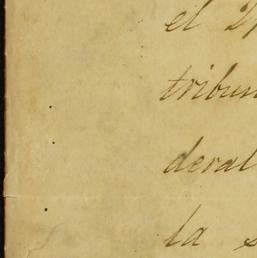 el
tribun
deral
la s